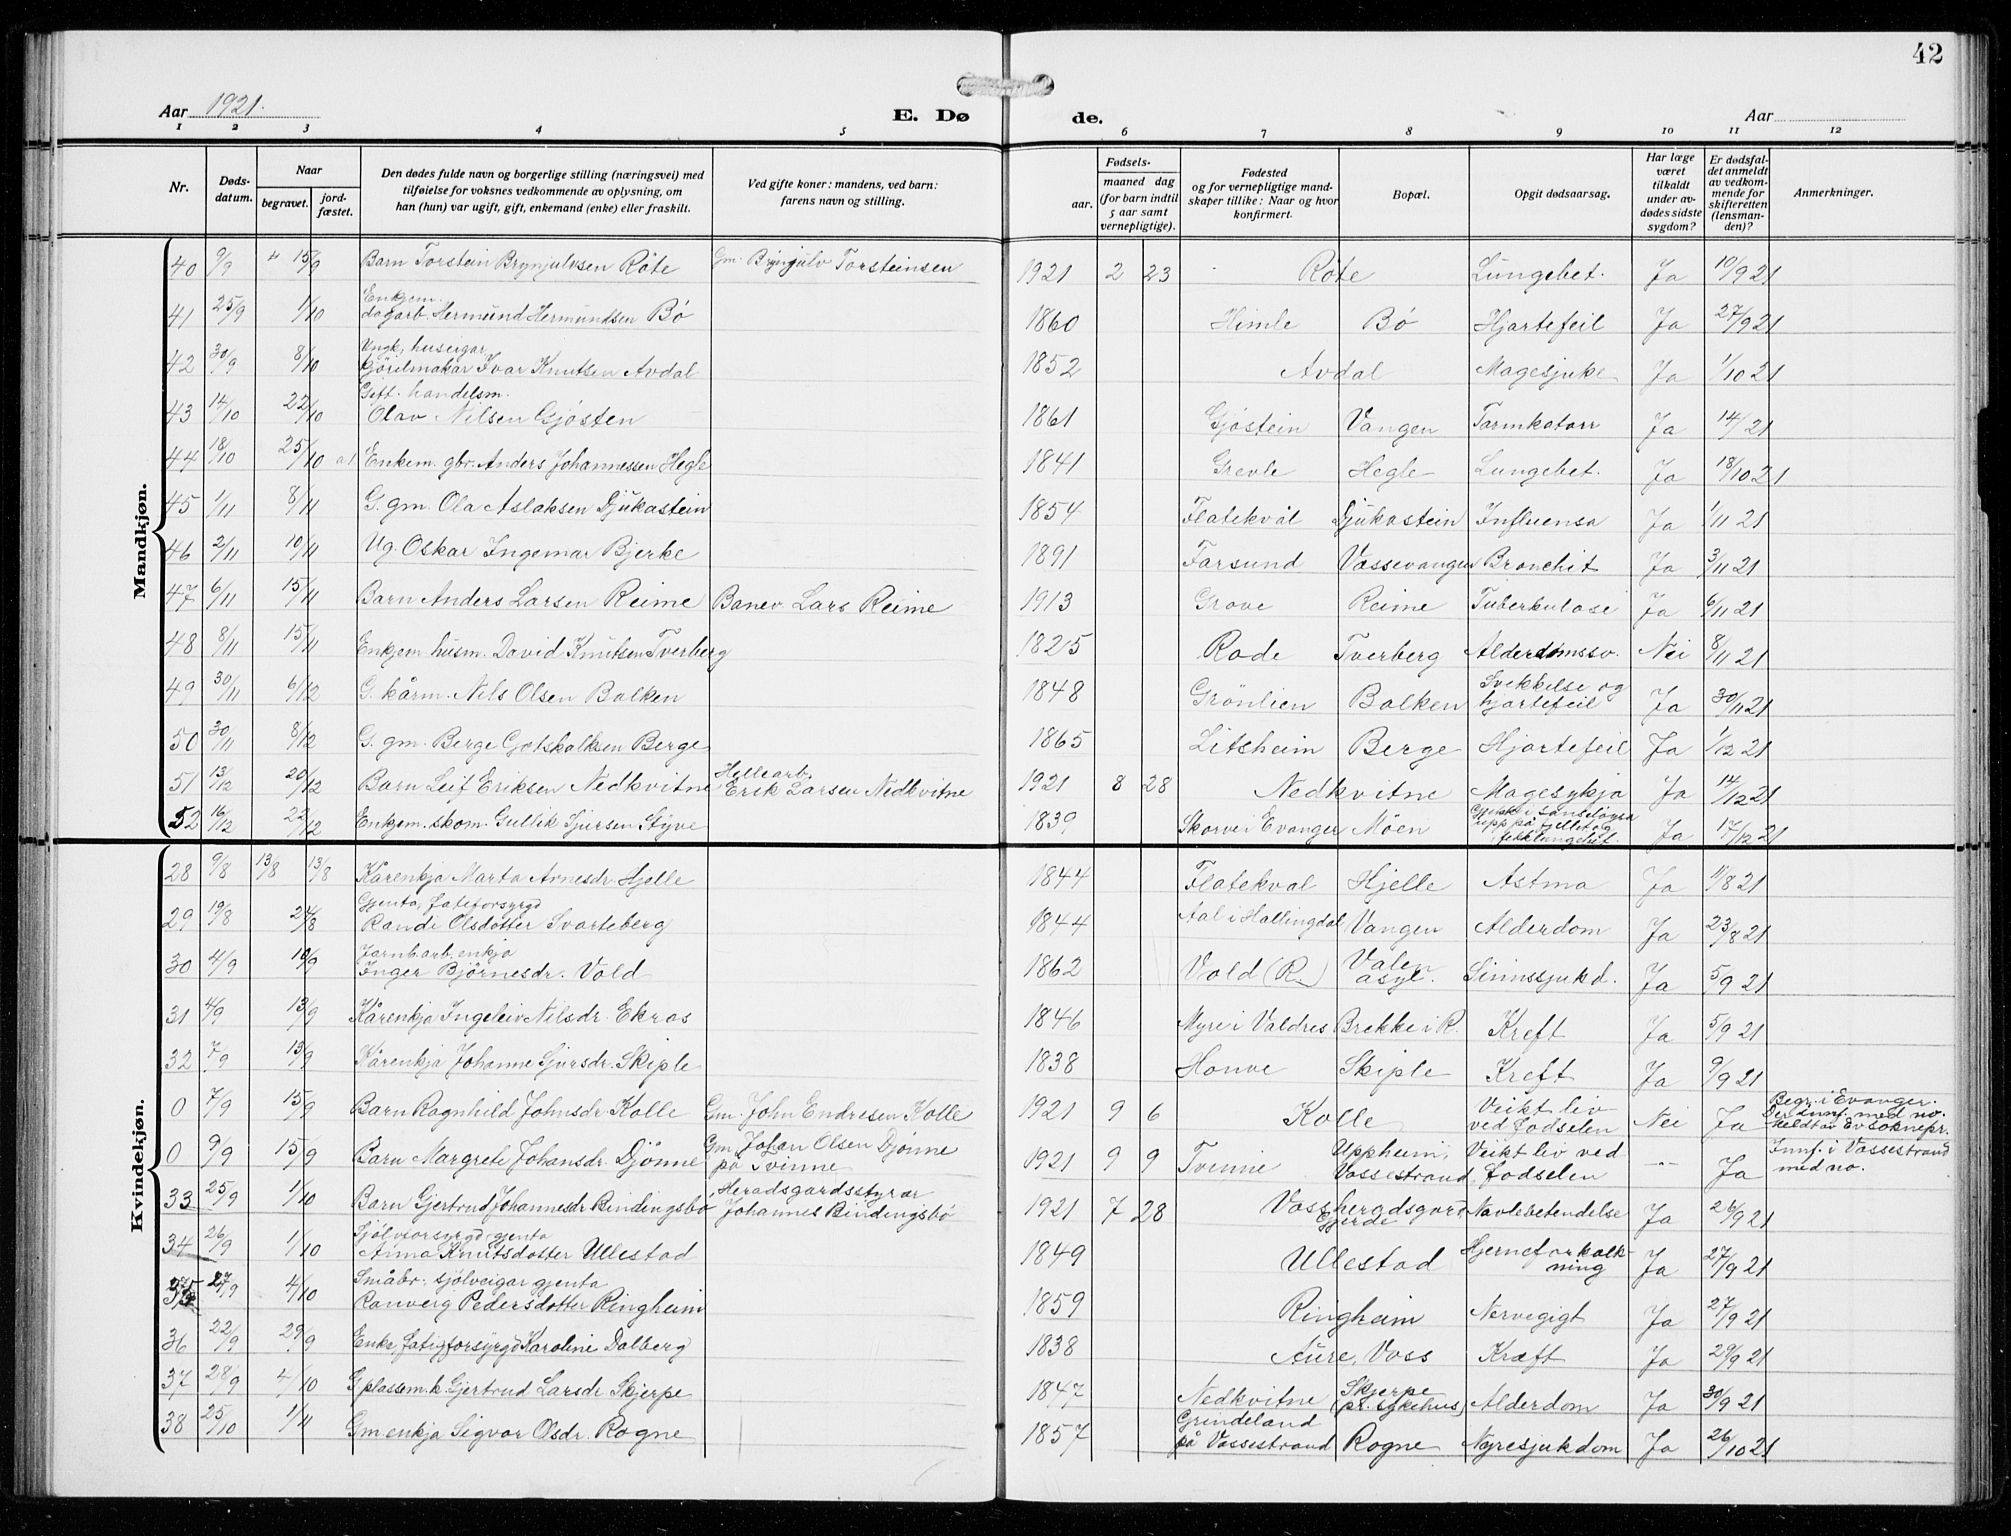 42
Aar 1921.
E. Døde.
Aar
1 2 3 4 5 6 7 8 9 10 11 12
Nr.
Døds-
datum.
Naar
begravet.
jord-
fæstet.
Den dødes fulde navn og borgerlige stilling (næringsvei) med
tilføielse for voksnes vedkommende av oplysning, om
han (hun) var ugift, gift, enkemand (enke) eller fraskilt.
Ved gifte koner: mandens, ved barn:
farens navn og stilling.
Fødsels-
aar.
maaned dag
(for barn indtil
5 aar samt
vernepligtige).
Fødested
og for vernepligtige mand-
skaper tillike: Naar og hvor
konfirmert.
Bopæl.
Opgit dødsaarsag.
Har læge
været
tilkaldt
under av-
dødes sidste
sygdom?
Er dødsfal-
det anmeldt
av vedkom-
mende for
skifteretten
(lensman-
den)?
Anmerkninger.
Mandkjøn.
40 9/9 " 15/9 Barn Torstein Brynjulvsen Røte Gm. Brynjulv Torsteinsen 1921 2 23 Røte Lungebet. Ja 10/9 21
41 25/9 1/10 Enkjem. dagarb. Hermund Hermundsen Bø 1860 Himle Bø Hjartefeil Ja 27/9 21
42 30/9 8/10 Ungk, huseigar Ivar Knutsen Avdal 1852 Avdal Magesjuke Ja 1/10 21
43 14/10 22/10 Gift. handelsm. Olav Nilsen Gjøsten 1861 Gjøstein Vangen Tarmkatarr Ja 14/ 21
44 18/10 25/10 Enkem. gbr. Anders Johannessen Hegle 1841 Grevle Hegle Lungebet. Ja 18/10 21
45 1/11 8/11 G. gm. Ola Aslaksen Djukastein 1854 Flatekvål Djukastein Influensa Ja 1/11 21
46 2/11 10/11 Ug. Oskar Ingemar Bjerke 1891 Farsund Vossevangen Bronchit Ja 3/11 21
47 6/11 15/11 Barn Anders Larsen Reime Banev. Lars Reime 1913 Grove Reime Tuberkulose Ja 6/11 21
48 8/11 15/11 Enkjem. husm. David Knutsen Tverberg 1825 Rode Tverberg Alderdomssv. Nei 8/11 21
49 30/11 6/12 G. kårm. Nils Olsen Balken 1848 Grønlien Balken Svekkelse og hjartefeil Ja 30/11 21
50 30/11 8/12 G. gm. Berge Gotskalksen Berge 1865 Litsheim Berge Hjartefeil Ja 1/12 21
51 13/12 20/12 Barn Leif Eriksen Nedkvitne Hellearb. Erik Larsen Nedkvitne 1921 8 28 Nedkvitne Magesykja Ja 14/12 21
52 16/12 22/12 Enkem. skom. Gullik Sjursen Styve 1839 Skorve i Evanger Møen upp på fjellet og fekk lungebet. Ja 17/12 21
Kvindekjøn.
28 9/8 13/8 13/8 Kårenkja Marta Arnesdr. Hjelle 1844 Flatekval Hjelle Astma Ja 11/8 21
29 19/8 24/8 Gjenta, fateforsyrgd Randi Olsdotter Svarteberg 1844 Aal i Hallingdal Vangen Alderdom Ja 23/8 21
30 4/9 10/9 Jarnb.arb. enkja Inger Bjørnesdr. Vold 1862 Vold (R.) Valen asyl. Sinnssjukd. Ja 5/9 21
31 4/9 13/9 Kårenkja Ingeleiv Nilsdr. Ekras 1846 Myre i Valdres Brekke i R. Kreft Ja 5/9 21
32 7/9 13/9 Kårenkja Johanne Sjursdr. Skiple 1838 Honve Skiple Kreft Ja 9/9 21
0 7/9 15/9 Barn Ragnhild Johnsdr. Kolle Gm. John Endresen Kolle 1921 9 6 Kolle Veikt liv ved fødselen Nei Ja Begr. i Evanger. Der innf. med no. Meldt av Ev. soknepr.
0 9/9 15/9 Barn Margrete Johansdr. Djønne Gm. Johan Olsen Djønne på Tvinne 1921 9 9 Tvinne Uppheim, Vossestrand Veikt liv ved fødselen -"- Ja Innf. i Vossestrand med no.
33 25/9 1/10 Barn Gjertrud Johannesdr. Bindingsbø Heradsgardsstyrar Johannes Bindingsbø 1921 7 28 Voss heradsgard Gjerde Navlebetendelse Ja 26/9 21
34 26/9 1/10 Sjølvforsyrgd gjenta Anna Knutsdotter Ullestad 1849 Ullestad Hjerneforkalkning Ja 27/9 21
35 27/9 4/10 Småbr. sjølveigar gjenta Ranveig Pedersdotter Ringheim 1859 Ringheim Nervegigt Ja 27/9 21
36 22/9 29/9 Enke, fatigforsyrgd Karoline Dalberg 1838 Aure, Voss Kræft Ja 29/9 21
37 28/9 4/10 G. plassem.k. Gjertrud Larsdr. Skjerpe 1847 Nedkvitne Skjerpe (p.t. sykehus) Alderdom Ja 30/9 21
38 25/10 1/11 Gm enkja Sigvor Olsdr. Rogne 1857 Grindeland på Vossestrand Rogne Nyresjukdom Ja 26/10 21